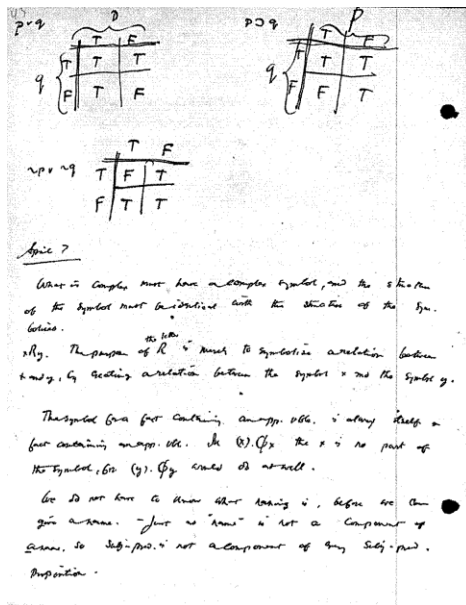 p v q
p
T F
q
T T T
F T F
p ⊃ q
p
T F
q
T T T
F F T
~p v ~q
T F
T F T
F T T
April 7
What is complex must have a complex symbol, and the structure
of the symbol must be identical with the structure of the sym-
bolised.
xRy. The purpose of the letter R is merely to symbolise a relation between
x and y, by creating a relation between the symbol x and the symbol y.
The symbol for a fact containing an app. vble. is always itself a
fact containing an app. vble. In (x).φx the x is no part of
the symbol, for (y).φy would do as well.
We do not have to know what naming is, before we can
give a name. - Just as "name" is not a component of
a name, so subj-pred. is not a component of any subj-pred.
proposition.